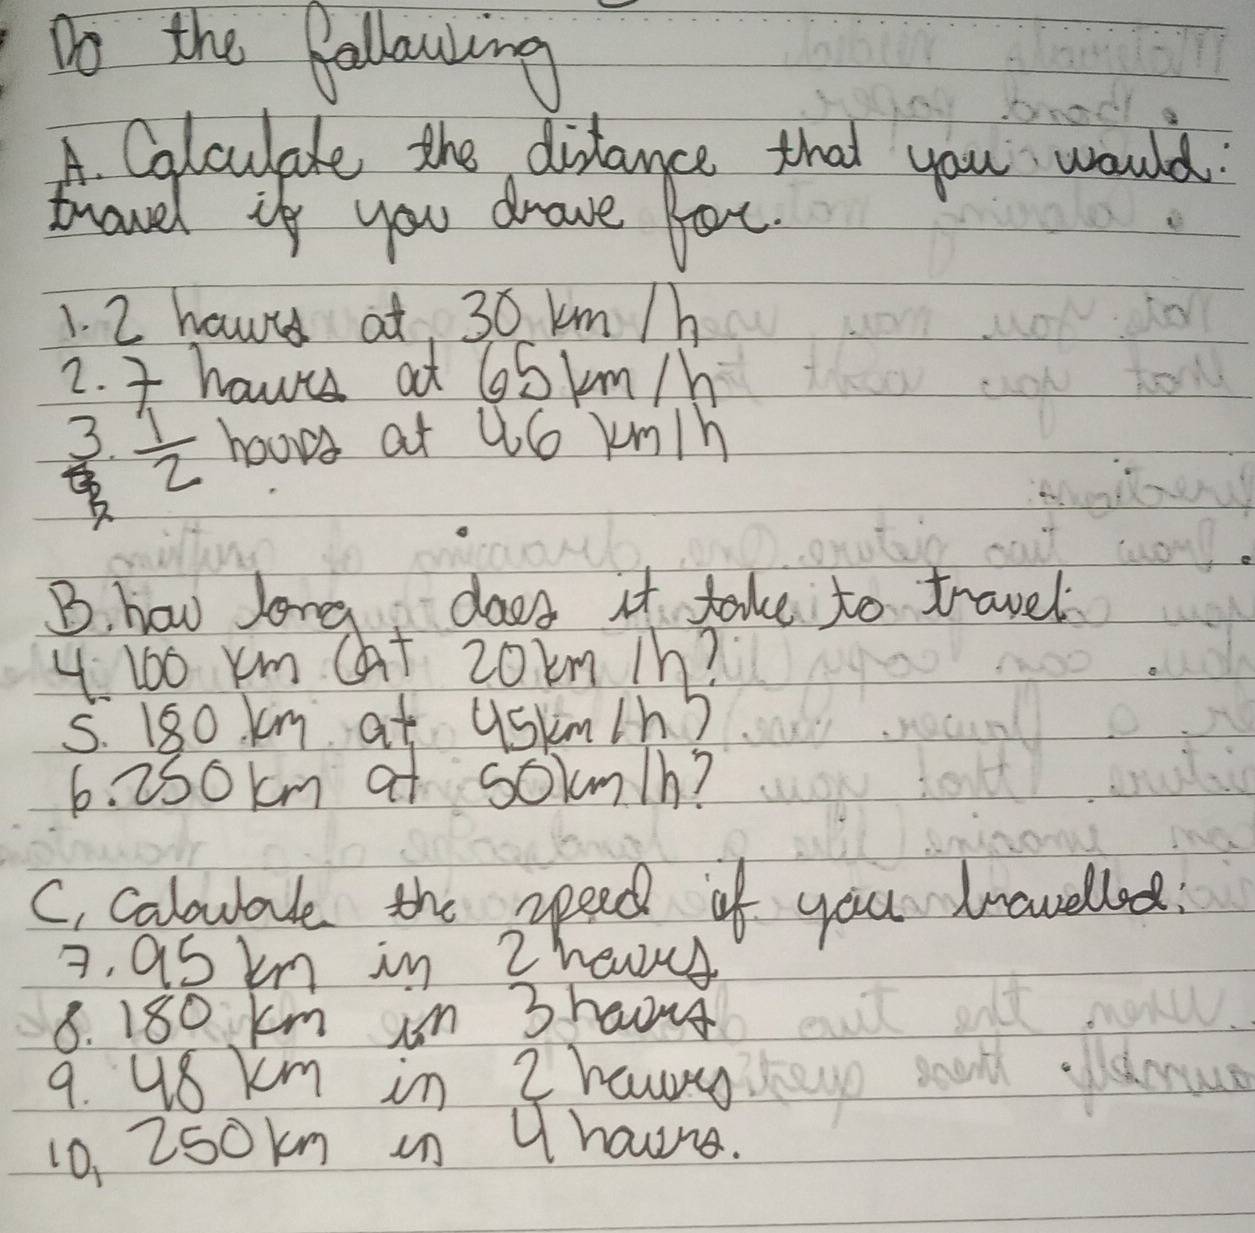 Do the following
A. Calculate the distance that you would:
travel if you drove for.
1. 2 hours at 30 km/h
2. 7 hours at 65 km/h
3. 1/2 hours at 46 km/h
B. how long does it take to travel:
4. 100 km at 20 km/h?
5. 180 km at 45 km/h?
6. 250 km at 50 km/h?
C, Calculate the speed if you travelled:
7. 95 km in 2 hours
8. 180 km in 3 hours
9. 48 km in 2 hours
10, 250 km in 4 hours.